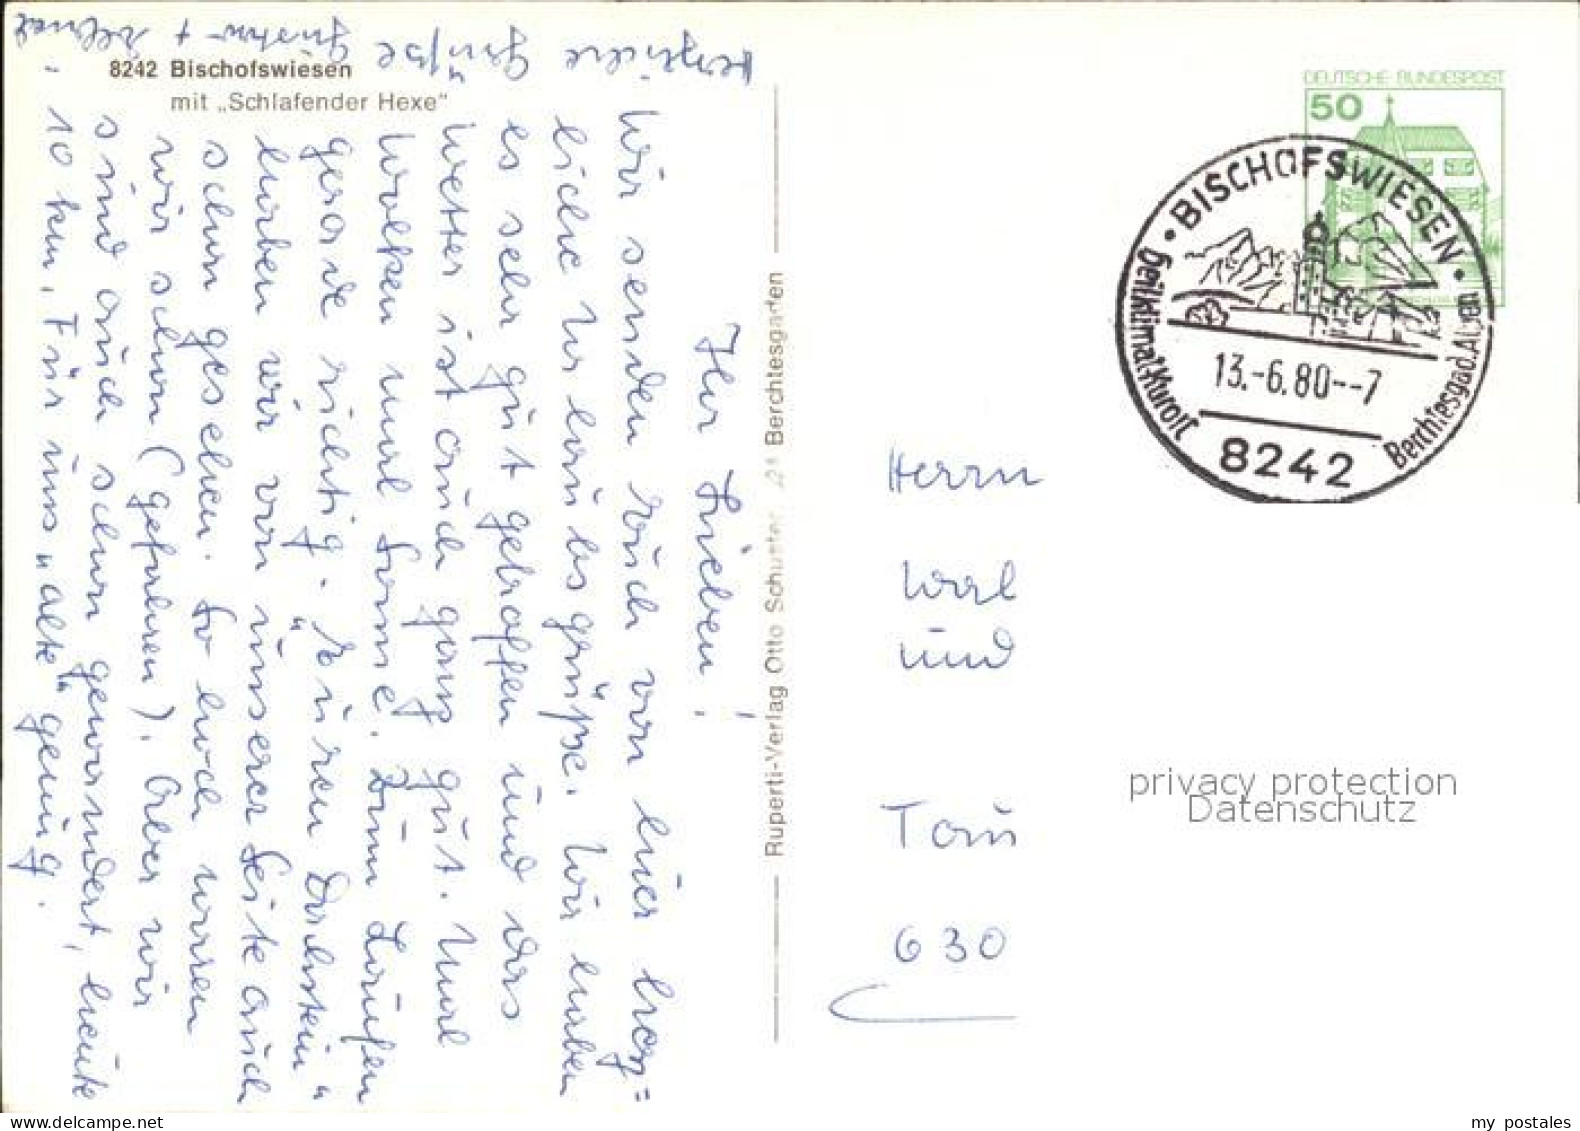 8242 Bischofswiesen
mit „Schlafender Hexe"
Ihr Lieben!
Wir senden Euch von hier herz=
liche Urlaubsgrüße. Wir haben
es sehr gut getroffen und das
Wetter ist auch ganz gut. Mal
Wolken mal Sonne. Zum Laufen
gerade richtig. Euren Dachstein"
haben wir von unserer Seite auch
schon gesehen. So hoch waren
wir schon (gefahren). Aber wir
sind auch schon gewandert, heute
10 km. Für uns „alte" genug.
Herzliche Grüße
Ruperti-Verlag Otto Schuster Berchtesgaden
DEUTSCHE BUNDESPOST
50
• BISCHOFSWIESEN •
Heilklimat. Kurort
Berchtesgad. Alpen
13.-6.80--7
8242
Herrn
und
630
privacy protection
Datenschutz
my postales